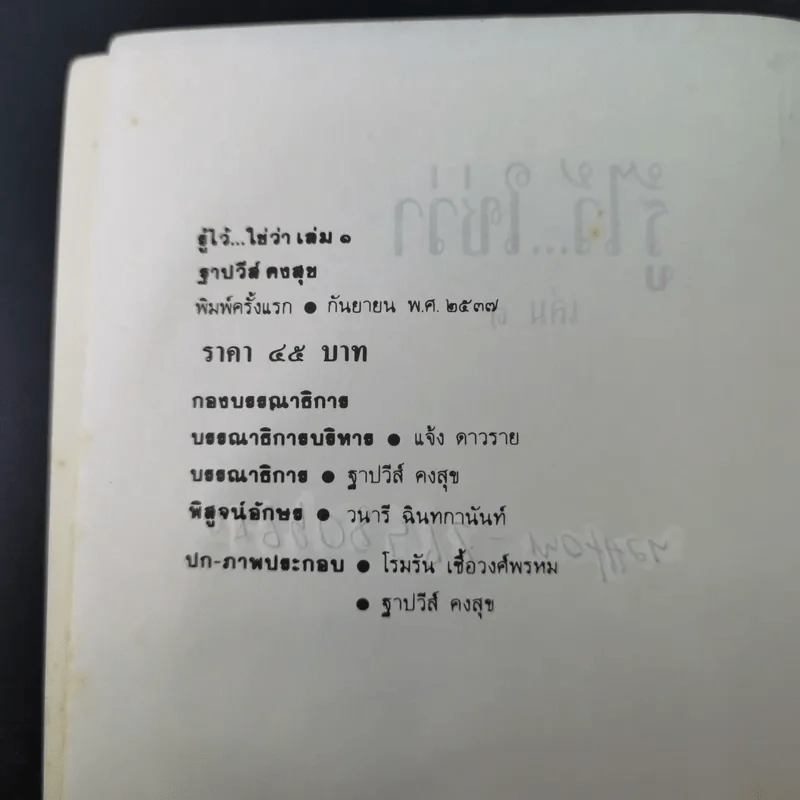 รู้ไว้...ใช่ว่า เล่ม ๑
ฐาปวีส์ คงสุข
พิมพ์ครั้งแรก ● กันยายน พ.ศ. ๒๕๓๗
ราคา ๔๕ บาท
กองบรรณาธิการ
บรรณาธิการบริหาร ● แจ้ง ดาวราย
บรรณาธิการ ● ฐาปวีส์ คงสุข
พิสูจน์อักษร ● วนารี ฉินทกานันท์
ปก-ภาพประกอบ ● โรมรัน เชื้อวงศ์พรหม
● ฐาปวีส์ คงสุข
รู้ไว้...ใช่ว่า
เล่ม